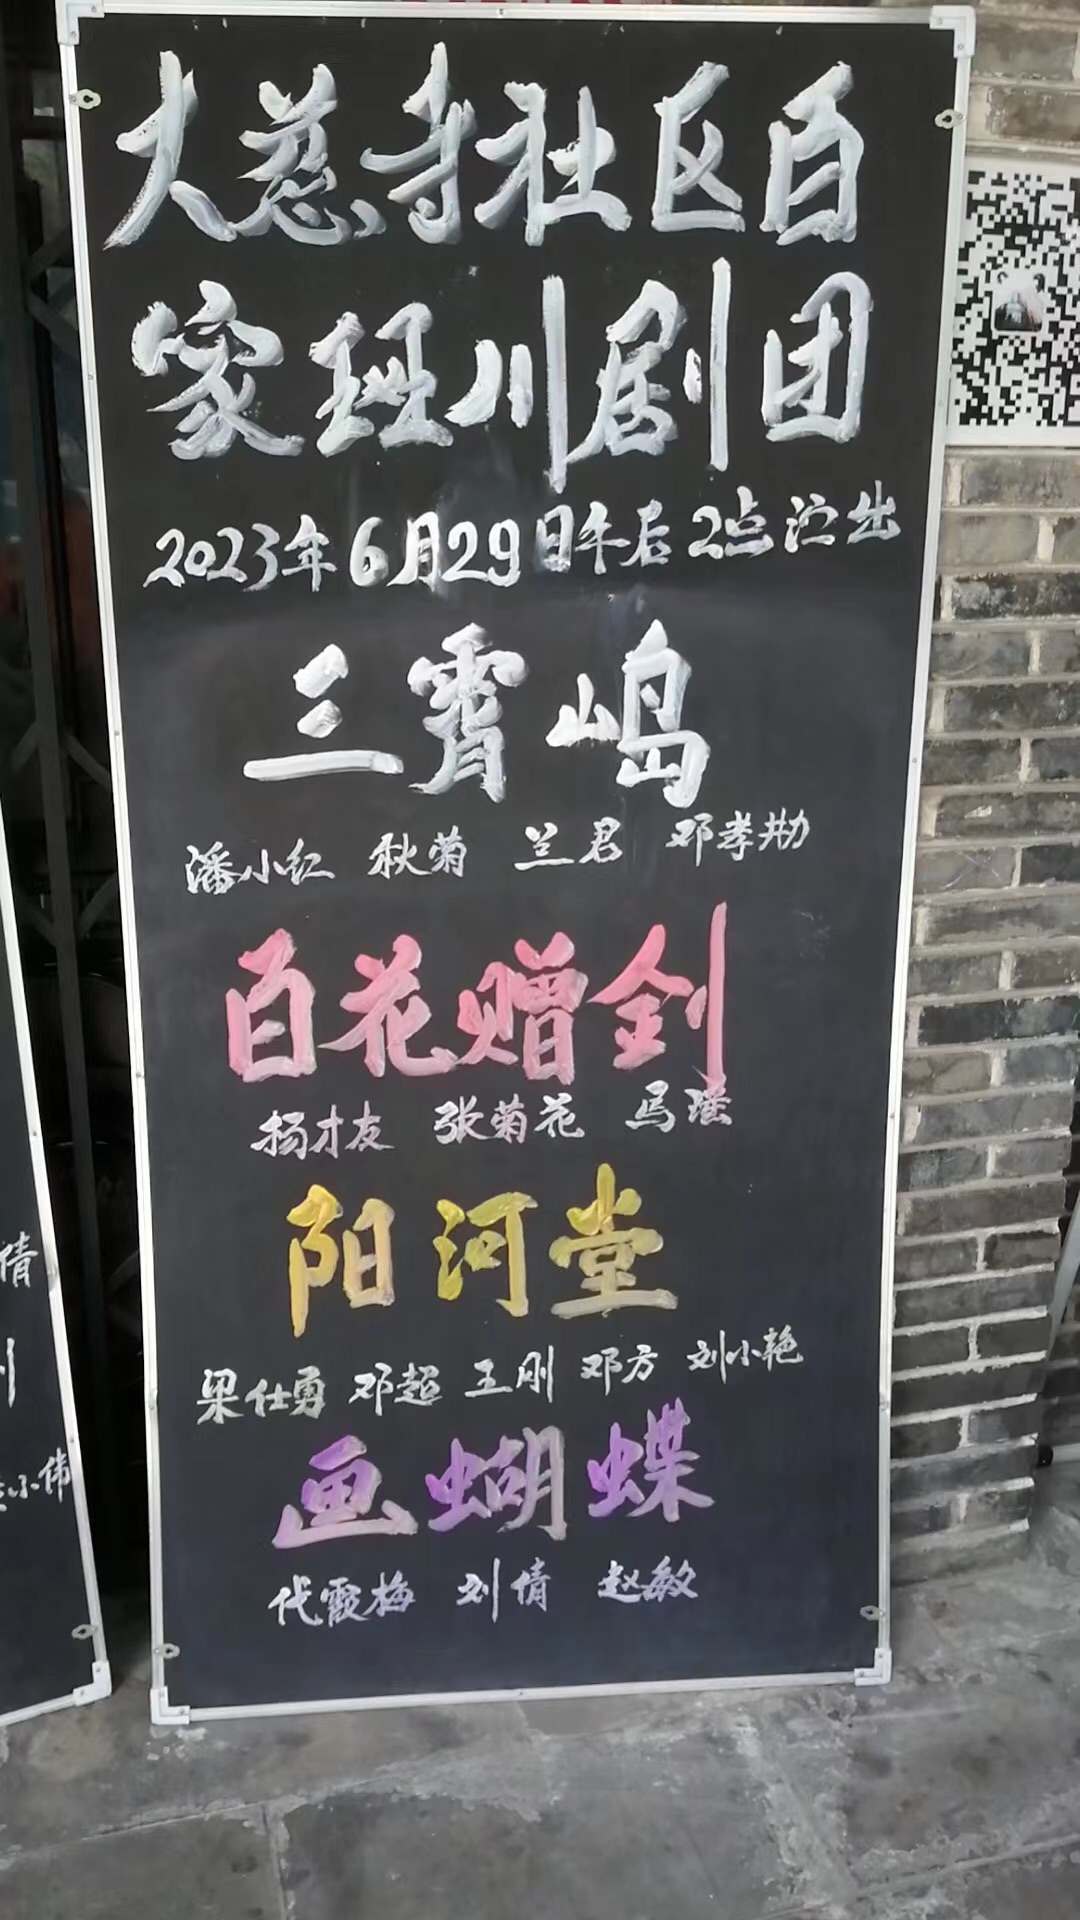 大慈寺社区百
家班川剧团
2023年6月29日午后2点演出
三霄岛
潘小红 秋菊 兰君 邓孝勋
百花赠剑
杨才友 张菊花 马瑶
阳河堂
梁仕勇 邓超 王刚 邓方 刘小艳
画蝴蝶
代霞梅 刘倩 赵敏
倩
小伟